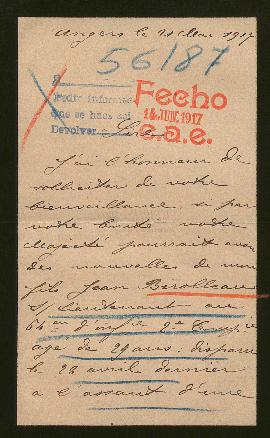 Angers le 21 Mai 1917
56/87
Pedir informes
que se haas aqui
Devolver a
Fecho
14 JUN. 1917
e.a.e.
Sire
J'ai l'honneur de
solliciter de votre
bienveillance si par
votre bonté votre
Majesté pourrait avoir
des nouvelles de mon
fils Jean
S/Lieutenant au
64 em d'infie 2e Compie
age de 29 ans. disparu
le 28 avril dernier
a l'assaut d'une